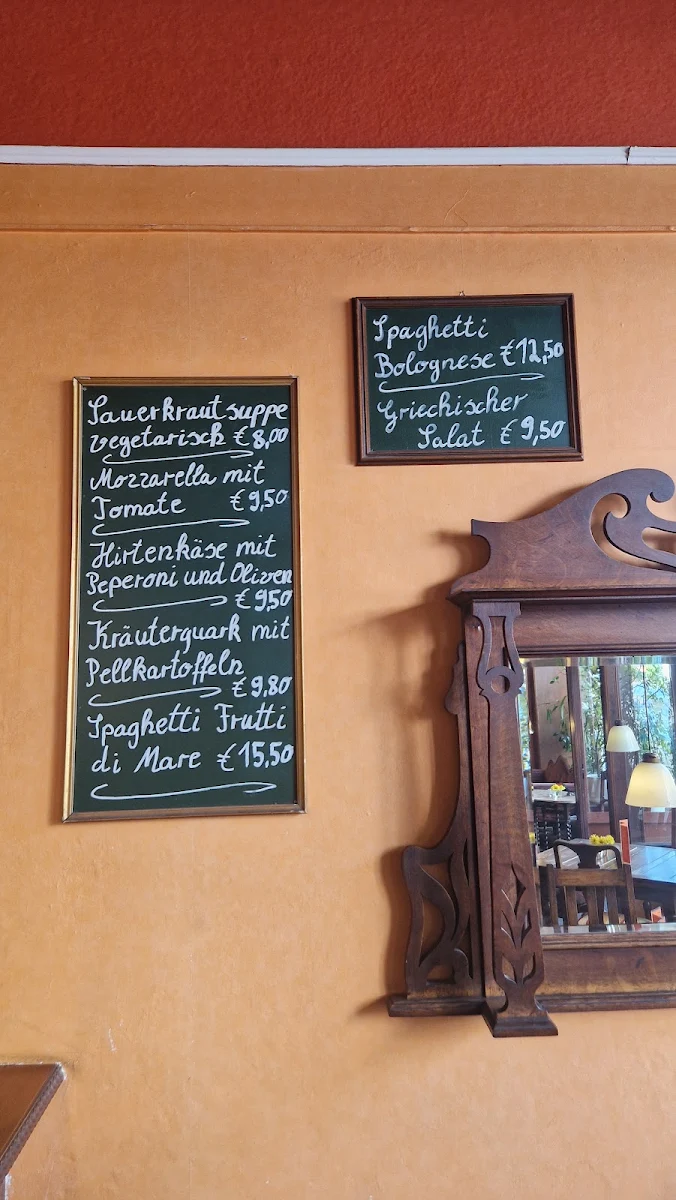 Sauerkrautsuppe
vegetarisch €8,00
Mozzarella mit
Tomate €9,50
Hirtenkäse mit
Peperoni und Oliven
€9,50
Kräuterquark mit
Pellkartoffeln
€9,80
Spaghetti Frutti
di Mare €15,50
Spaghetti
Bolognese €12,50
Griechischer
Salat €9,50